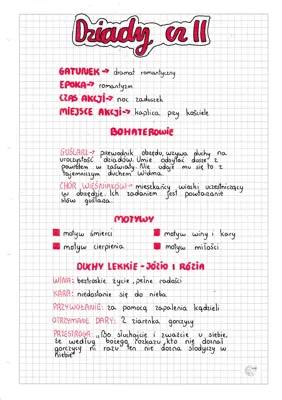 Dziady cz II
GATUNEK → dramat romantyczny
EPOKA → romantyzm
CZAS AKCJI → noc zaduszek
MIEJSCE AKCJI → kaplica przy kościele
BOHATEROWIE
GUŚLARZ → przewodnik obrzędu, wzywa duchy na
uroczystość dziadów. Umie odsyłać dusze z
powrotem w zaświaty. Nie udaje mu się to z
tajemniczym duchem widma.
CHÓR WIEŚNIAKÓW → mieszkańcy wioski uczestniczący
w obrzędzie. Ich zadaniem jest powtarzanie
słów guślarza.
MOTYWY
motyw śmierci motyw winy i kary
motyw cierpienia motyw miłości
DUCHY LEKKIE - JÓZIO I RÓZIA
WINA: beztroskie życie, pełne radości
KARA: niedostanie się do nieba
PRZYWOŁANIE: za pomocą zapalenia kądzieli
OTRZYMANE DARY: 2 ziarenka gorczycy
PRZESTROGA: „Bo słuchajcie i zważcie u siebie,
że według bożego rozkazu, kto nie doznał
goryczy ni razu ten nie dozna słodyczy w
niebie"